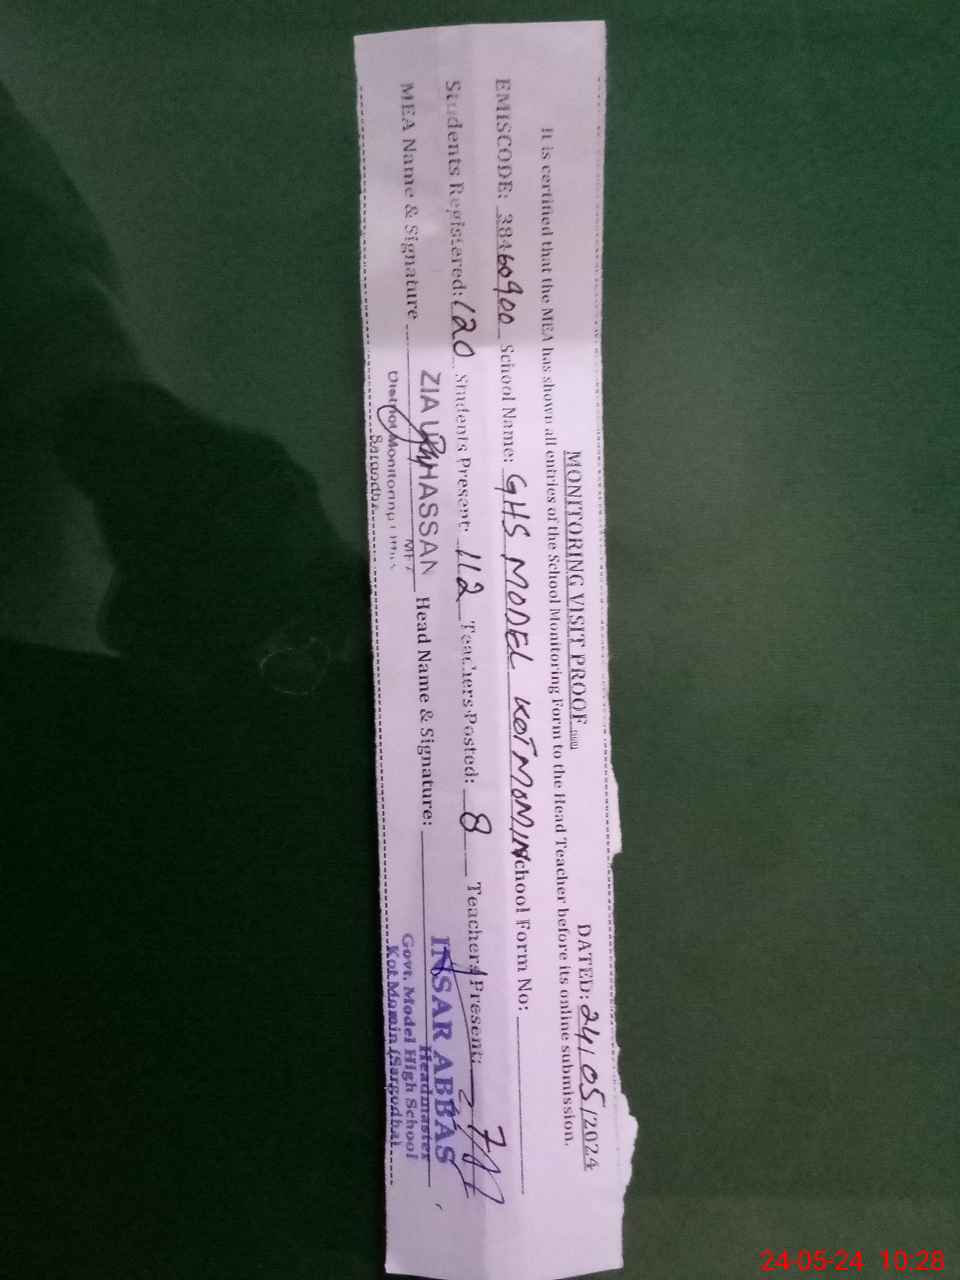 MONITORING VISIT PROOF
DATED: 24/05/2024
It is certified that the MEA has shown all entries of the School Monitoring Form to the Head Teacher before its online submission.
EMISCODE: 38460900 School Name: GHS MODEL KOT MOMIN School Form No:
Students Registered: 120 Students Present: 112 Teachers Posted: 8 Teachers Present: 7
MEA Name & Signature Head Name & Signature:
ZIA UL HASSAN
MEA
District Monitoring
Sargodha
INSAR ABBAS
Headmaster
Govt. Model High School
Kot Momin (Sargodha)
24-05-24 10:28